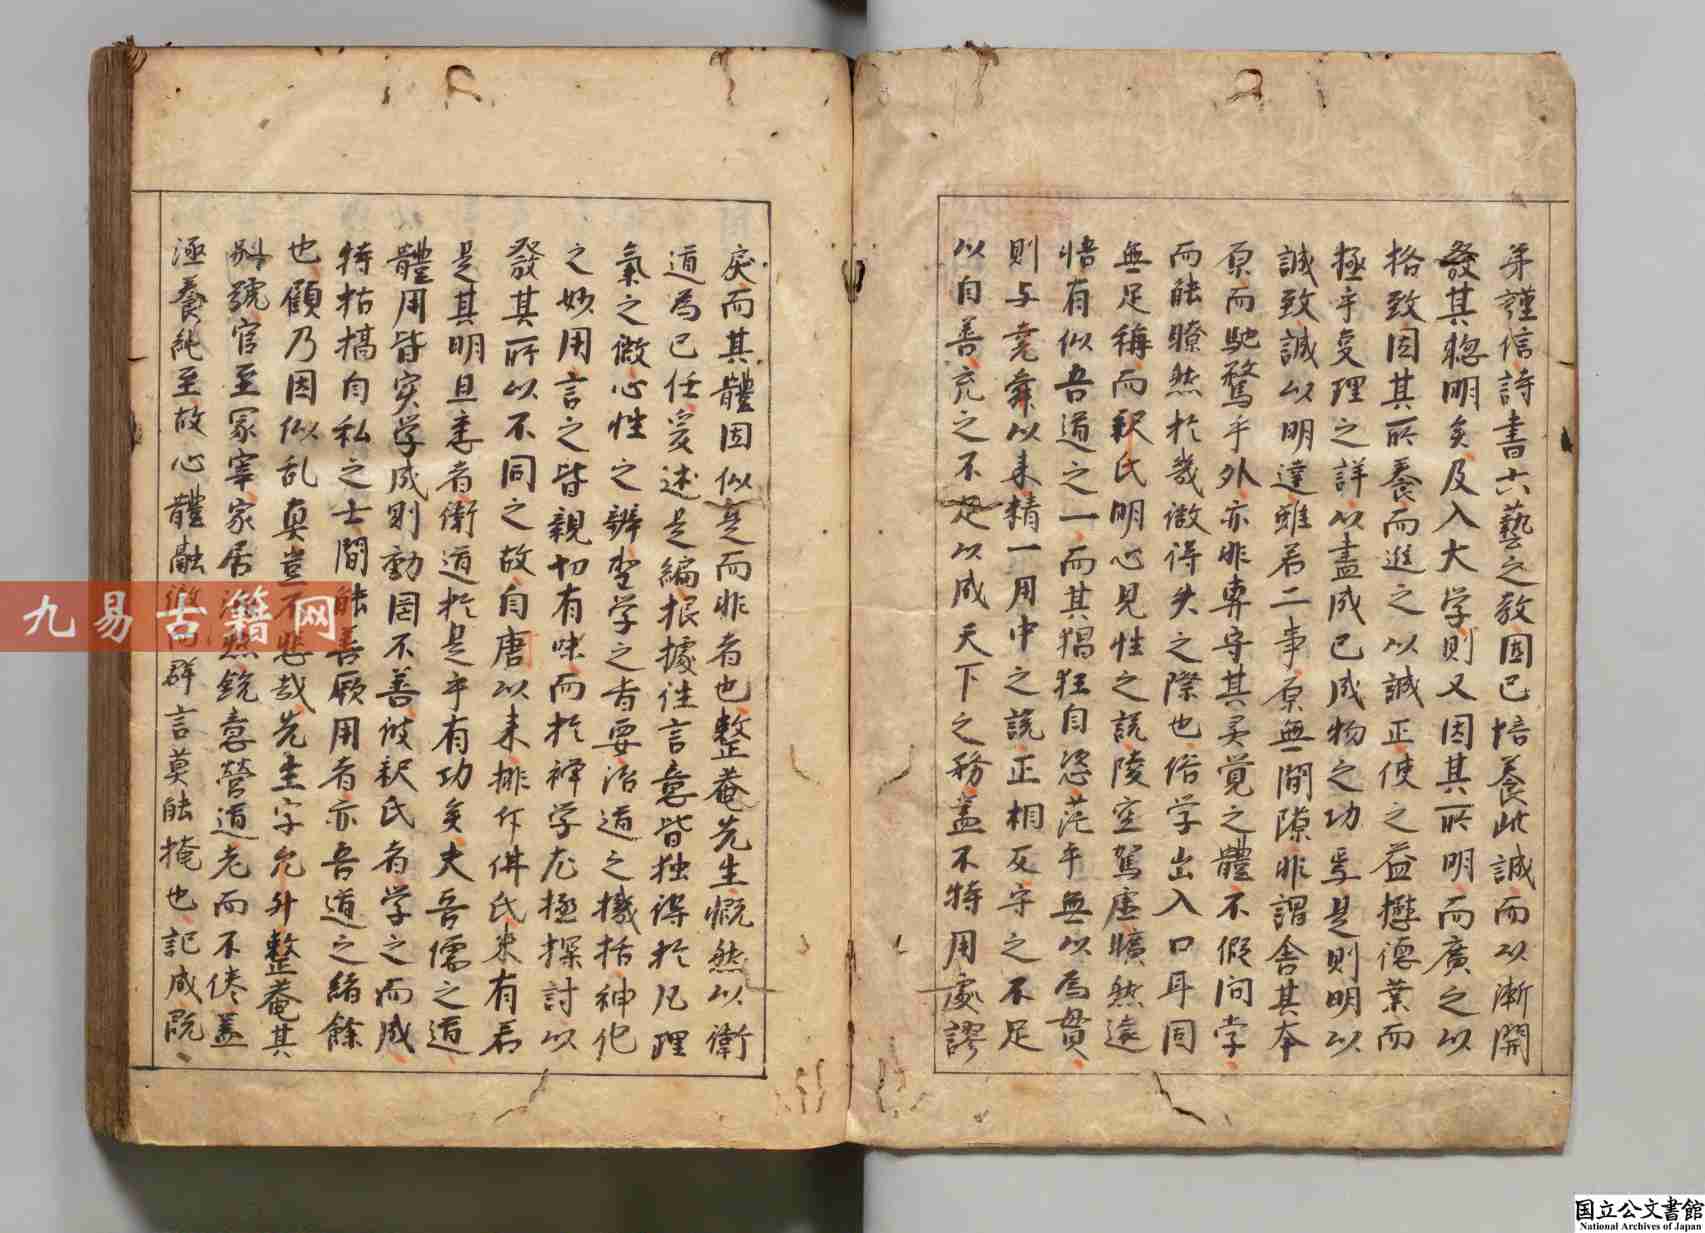 弟謹信詩書六藝之教固已培養此誠而以漸開
發其聰明矣及入大学則又因其所明而廣之以
格致因其所養而進之以誠正使之益懋德業而
極乎变理之詳以盡成已成物之功焉是則明以
誠致誠以明達雖若二事原無間隙非謂舍其本
原而馳騖乎外亦非專守其灵覚之體不假问学
而能瞭然於幾微得失之際也俗学出入口耳固
無足稱而釈氏明心見性之説陵空駕虛曠然遠
悟有似吾道之一而其猖狂自恣茫乎無以為貫
則与尭舜以来精一用中之説正相反守之不足
以自善充之不足以成天下之务盖不特用處謬
戾而其體固似是而非者也整菴先生慨然以衛
道為已任爰述是編根據往言意皆独得於凡理
氣之微心性之辨坙学之旨要治道之機括神化
之妙用言之皆親切有味而於禅学尤極探討以
發其所以不同之故自唐以来排斥佛氏未有若
是其明且悉者衛道於是乎有功矣夫吾儒之道
體用皆实学成則動罔不善彼釈氏者学之而成
特枯槁自私之士間能善厥用者亦吾道之緒餘
也顧乃因似乱真豈不悲哉先生字允升整菴其
别號官至冢宰家居澹然銳意營道老而不倦盖
涵養純至故心體融徹而群言莫能掩也記成既
九易古籍网
国立公文書館
National Archives of Japan